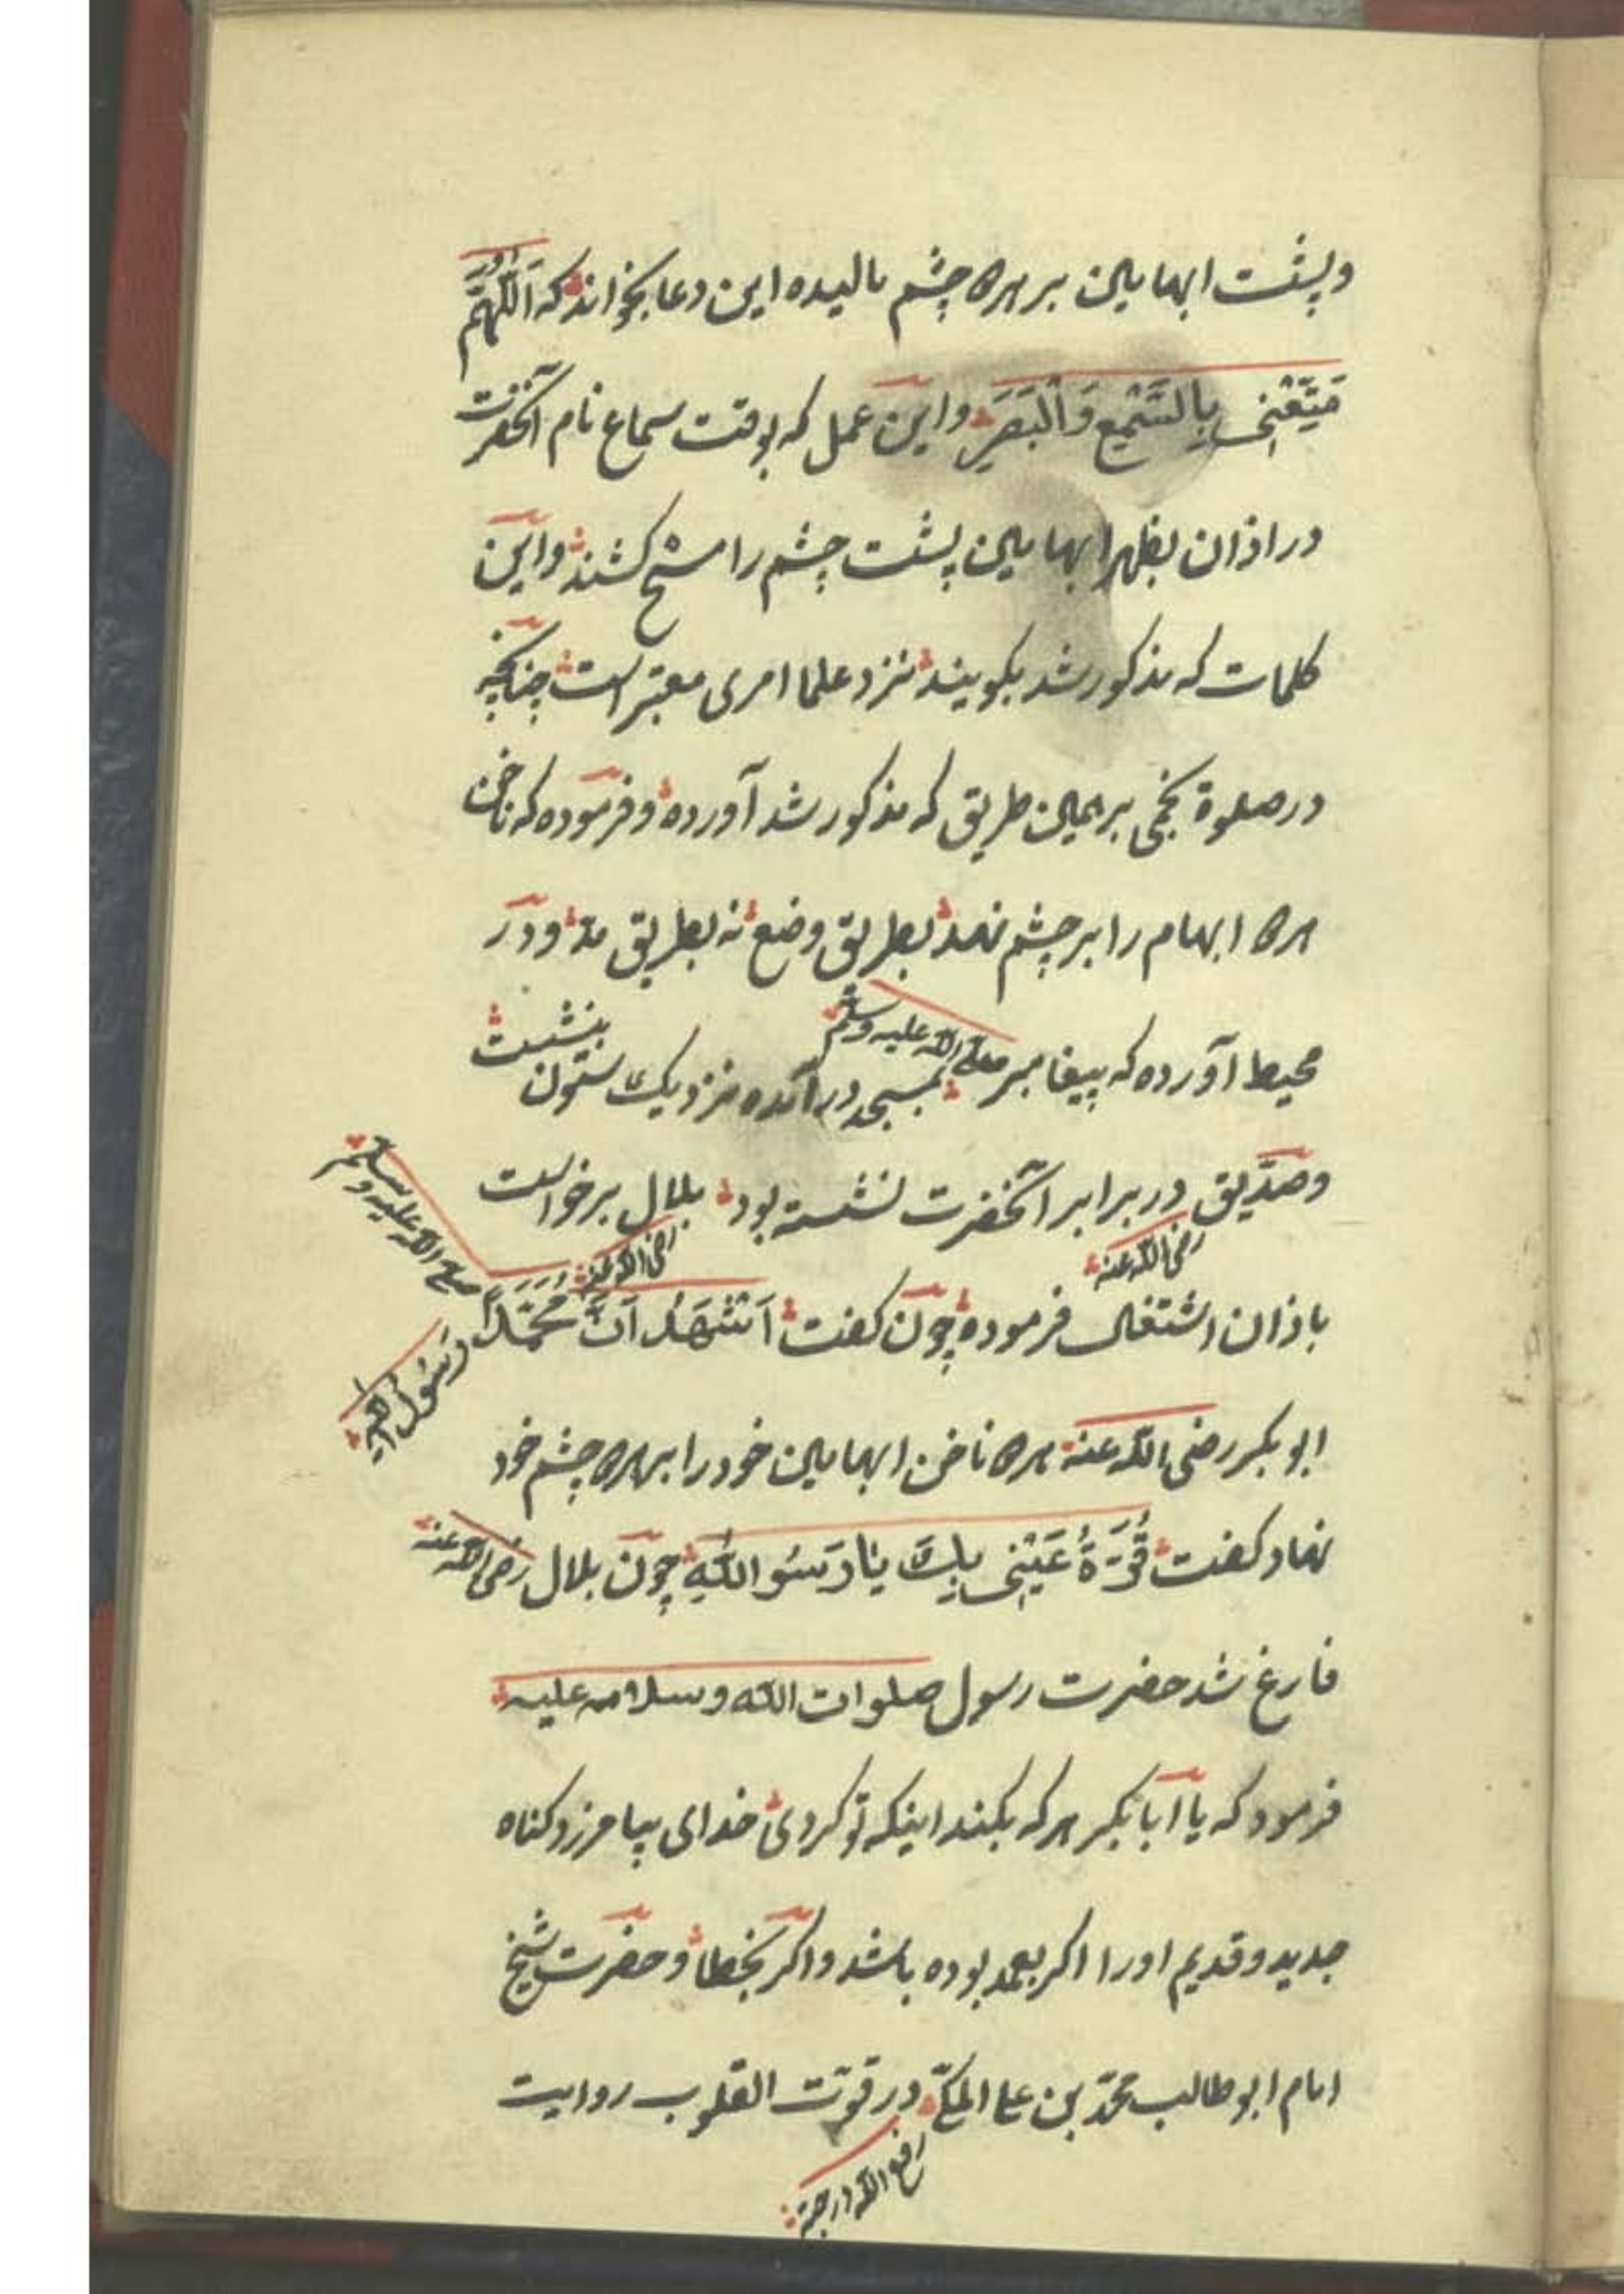 و پشت ابهامین بر هر دو چشم مالیده این دعا بخواند که اَللّٰهُمَّ
مَتِّعْنِی بِالسَّمْعِ وَالْبَصَرِ و این عمل که بوقت سماع نام آنحضرت
در اذان بظهر ابهامین پشت چشم را مسح کشند و این
کلمات که مذکور شد بکویند نزد علما امری معتبر است چنانچه
در صلوة نخجی بر همین طریق که مذکور شد آورده و فرموده که ناخن
هر دو ابهام را بر چشم نهد بطریق وضع نه بطریق مد و در
محیط آورده که پیغامبر صلی الله علیه وسلم بمسجد در آمده نزدیک ستون بنشست
و صدّیق رضی الله عنه در برابر آنحضرت نشسته بود بلال رضی الله عنه برخواست
باذان اشتغال فرموده چون کفت اَشْهَدُ اَنَّ مُحَمَّدًا رَسُولُ اللهِ صلی الله علیه وسلم
ابوبکر رضی الله عنه هر دو ناخن ابهامین خود را بر هر دو چشم خود
نهاد کفت قُرَّةُ عَیْنِی بِكَ یَا رَسُوالله چون بلال رضی الله عنه
فارغ شد حضرت رسول صلوات الله وسلامه علیه
فرمود که یا ابابکر هر که بکند اینکه تو کردی خدای بیامرزد کناه
جدید و قدیم اورا اکر بعمد بوده باشد و اکر بخطا و حضرت شیخ
امام ابوطالب محمّد بن علی المکی رفع الله درجته در قوّت القلوب روایت